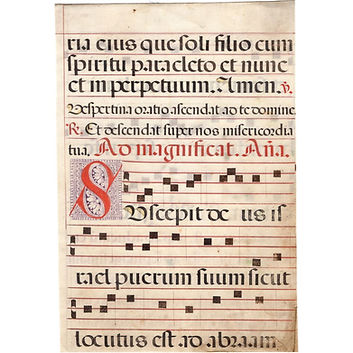 ria eius que soli filio cum
spiritu paracleto et nunc
et in perpetuum. Amen. ℣.
Vespertina oratio ascendat ad te domine.
℟. Et descendat super nos misericordia
tua. Ad magnificat. Aña.
Suscepit de us is
rael puerum suum sicut
locutus est ad abraam